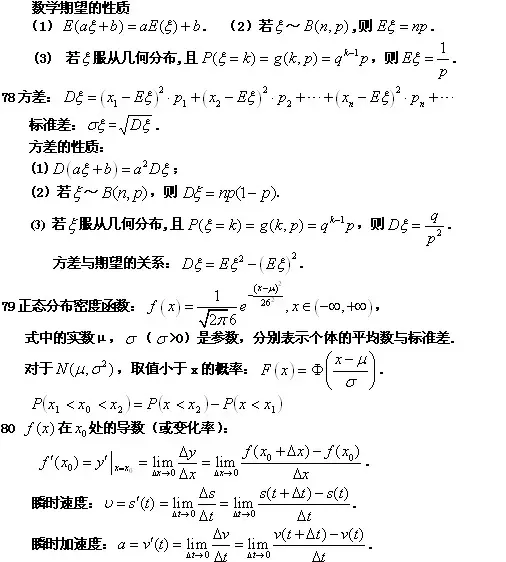 数学期望的性质
(1) E(aξ+b)=aE(ξ)+b. (2) 若ξ～B(n,p),则Eξ=np.
(3) 若ξ服从几何分布,且P(ξ=k)=g(k,p)=q^{k-1}p，则Eξ=1/p.
78方差：Dξ=(x₁-Eξ)²·p₁+(x₂-Eξ)²·p₂+⋯+(xₙ-Eξ)²·pₙ+⋯
标准差：σξ=√Dξ.
方差的性质：
(1)D(aξ+b)=a²Dξ；
(2) 若ξ～B(n,p)，则Dξ=np(1-p).
(3) 若ξ服从几何分布,且P(ξ=k)=g(k,p)=q^{k-1}p，则Dξ=q/p².
方差与期望的关系：Dξ=Eξ²-(Eξ)².
79正态分布密度函数：f(x)=1/(√(2π)6) e^{-(x-μ)²/(26²)},x∈(-∞,+∞)，
式中的实数μ，σ（σ>0）是参数，分别表示个体的平均数与标准差.
对于N(μ,σ²)，取值小于x的概率：F(x)=Φ((x-μ)/σ).
P(x₁<x₀<x₂)=P(x<x₂)-P(x<x₁)
80 f(x)在x₀处的导数（或变化率）：
f′(x₀)=y′|_{x=x₀}=lim_{Δx→0} Δy/Δx=lim_{Δx→0} (f(x₀+Δx)-f(x₀))/Δx.
瞬时速度：υ=s′(t)=lim_{Δt→0} Δs/Δt=lim_{Δt→0} (s(t+Δt)-s(t))/Δt.
瞬时加速度：a=v′(t)=lim_{Δt→0} Δv/Δt=lim_{Δt→0} (v(t+Δt)-v(t))/Δt.